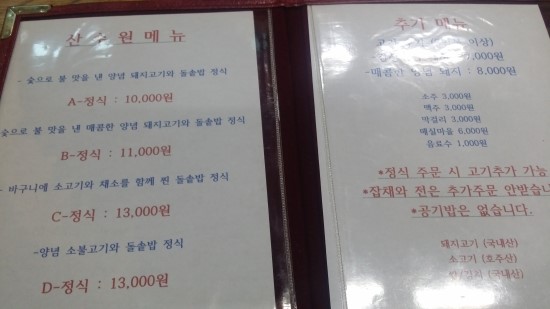 산수원메뉴
-숯으로 불 맛을 낸 양념 돼지고기와 돌솥밥 정식
A-정식 : 10,000원
숯으로 불 맛을 낸 매콤한 양념 돼지고기와 돌솥밥 정식
B-정식 : 11,000원
- 바구니에 소고기와 채소를 함께 찐 돌솥밥 정식
C-정식 : 13,000원
-양념 소불고기와 돌솥밥 정식
D-정식 : 13,000원
추가 메뉴
이상)
-매콤한 양념 돼지 : 8,000원
소주 3,000원
맥주 3,000원
막걸리 3,000원
매실마을 6,000원
음료수 1,000원
*정식 주문 시 고기추가 가능
*잡채와 전은 추가주문 안받습니
*공기밥은 없습니다.
돼지고기 (국내산)
소고기 (호주산)
(국내산)